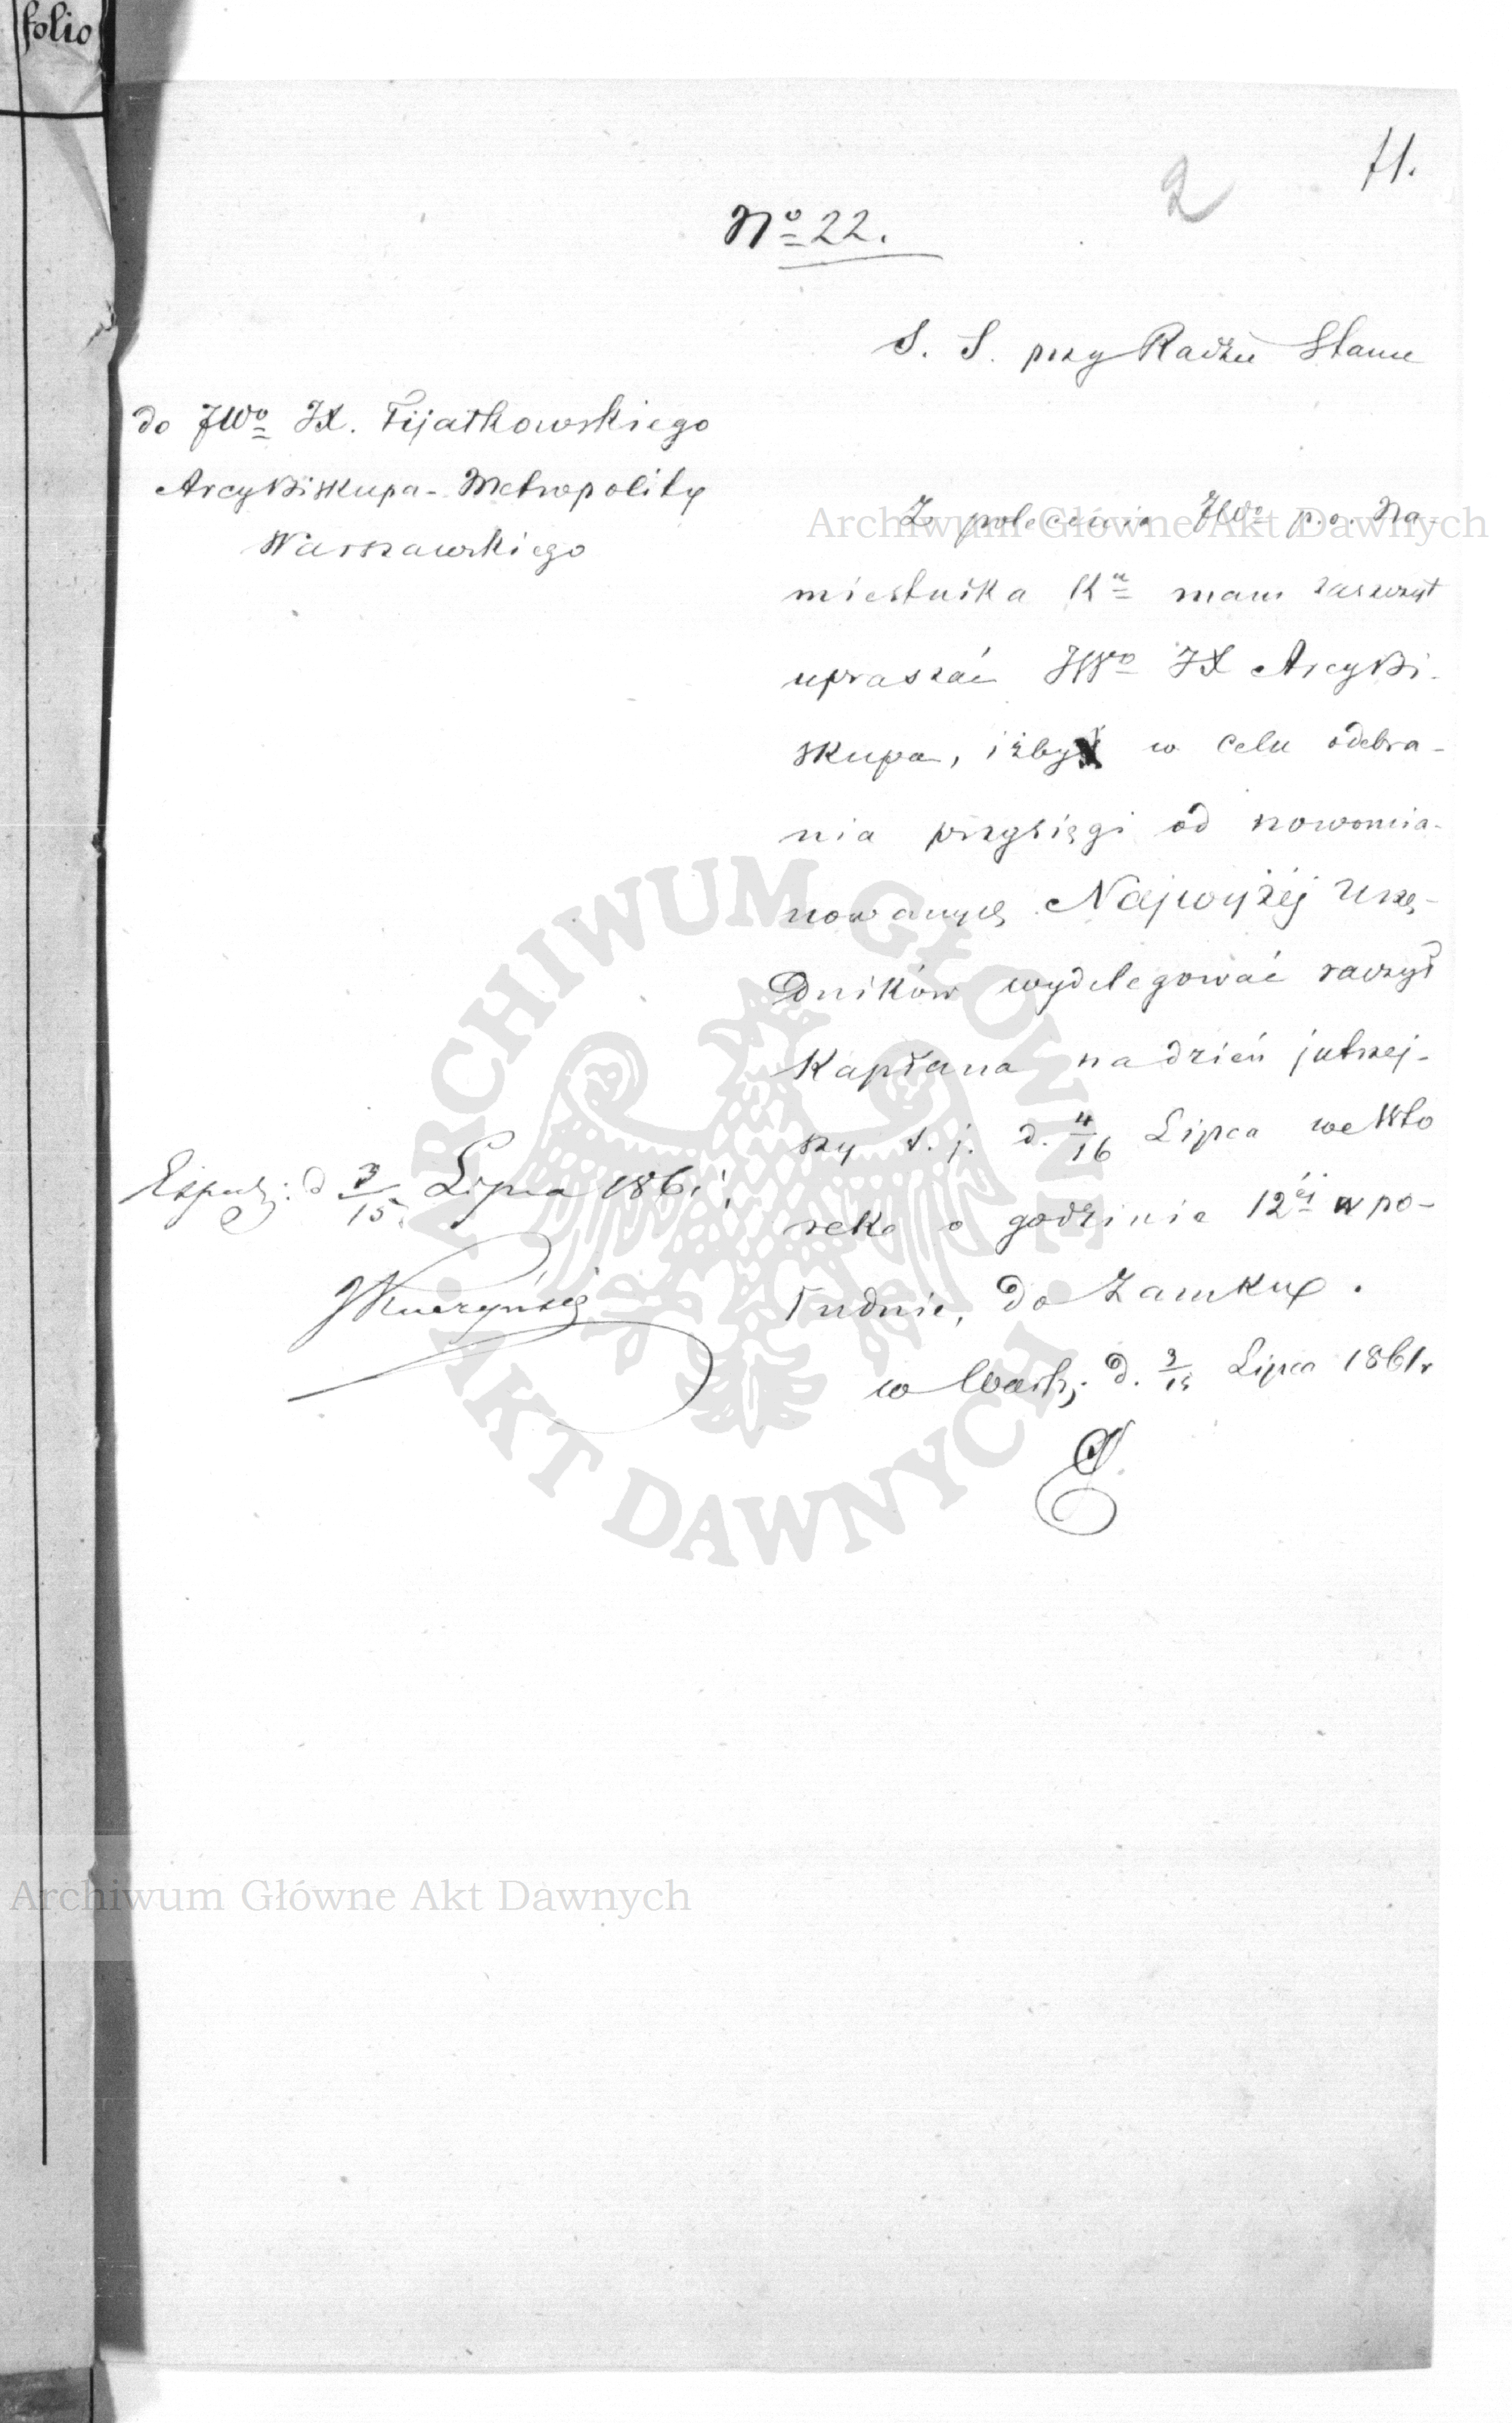 folio
71.
2
No 22.
S. S. przy Radzie Stanu
do JWo JX. Fijałkowskiego
Arcybiskupa-Metropolity
Warszawskiego
Z polecenia JWo p.o. Na-
miestnika Ka mam zaszczyt
upraszać JWo JX Arcybi-
skupa, iżby w celu odebra-
nia przysięgi od nowomia-
nowanych Najwyżéj Urzę-
dników wydelegować raczył
Kapłana na dzień jutrzej-
szy t. j. d. 4/16 Lipca we Wto
rek o godzinie 12éj w po-
łudnie, do Zamku.
w Warsz. d. 3/15 Lipca 1861r
Exped: d 3/15 Lipca 1861
Archiwum Główne Akt Dawnych
ARCHIWUM GŁÓWNE • AKT DAWNYCH •
Archiwum Główne Akt Dawnych